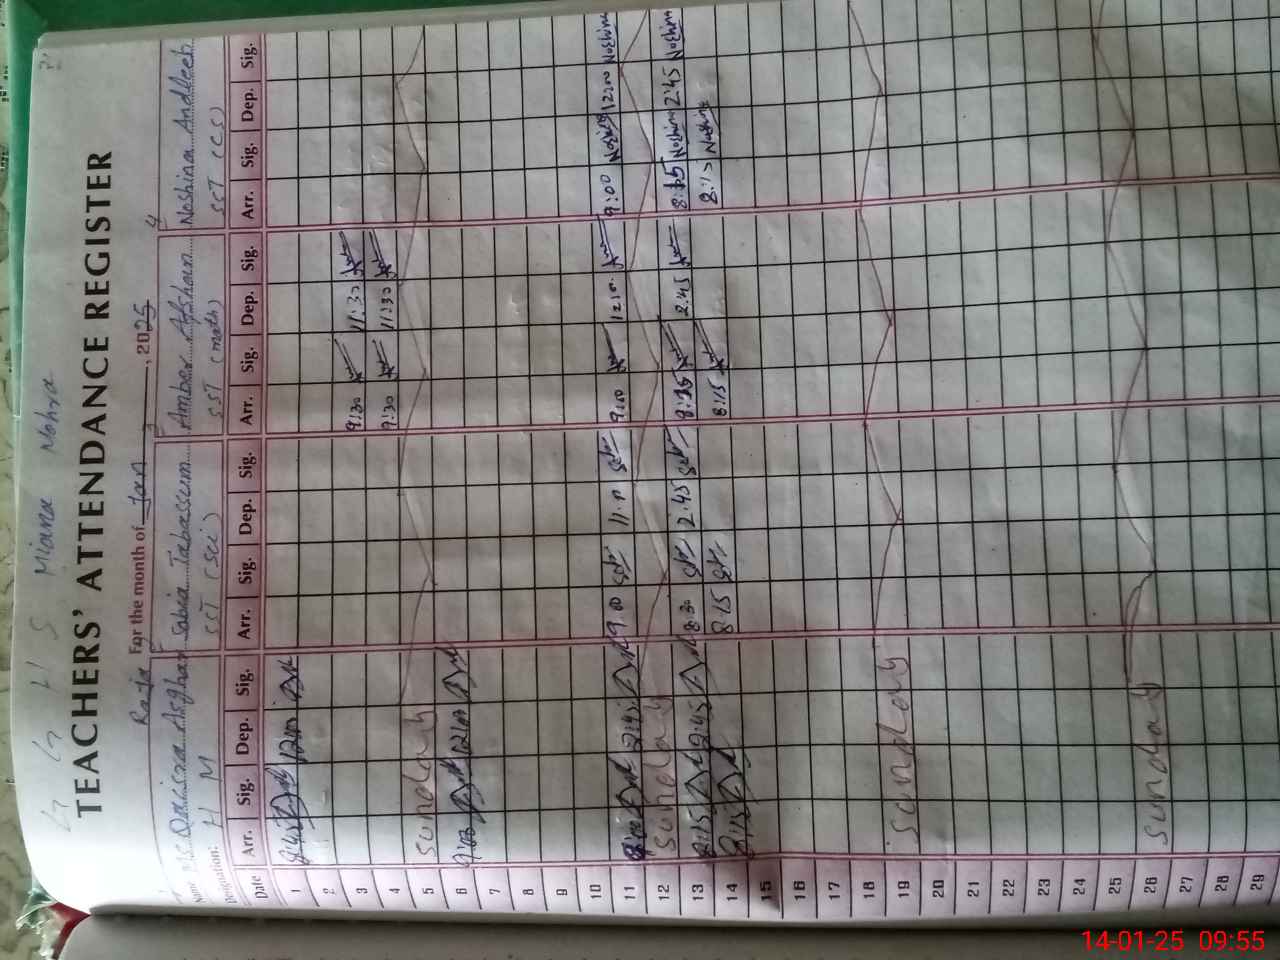 G G H S Miana Mohra
TEACHERS' ATTENDANCE REGISTER
Raja For the month of Jan, 2025
Name Ms Qaisra Asghar Sabia Tabassum Amber Afshan 4 Noshina Andleeb
Designation: H M SST (Sci) SST (math) SST (CS)
Date Arr. Sig. Dep. Sig. Arr. Sig. Dep. Sig. Arr. Sig. Dep. Sig. Arr. Sig. Dep. Sig.
1 8:45
2
3 9:30 11:30
4 9:30 11:30
5 Sunday
6 9:00
7
8
9
10
11 9:00 9:00 9:00 Noshina 12:00 Noshina
12 Sunday
13 8:15 2:45 8:30 2:45 8:15 2:45 8:15 Noshina 2:45 Noshina
14 8:15 8:15 8:15 8:15 Noshina
15
16
17
18
19 Sunday
20
21
22
23
24
25
26 Sunday
27
28
29
14-01-25 09:55